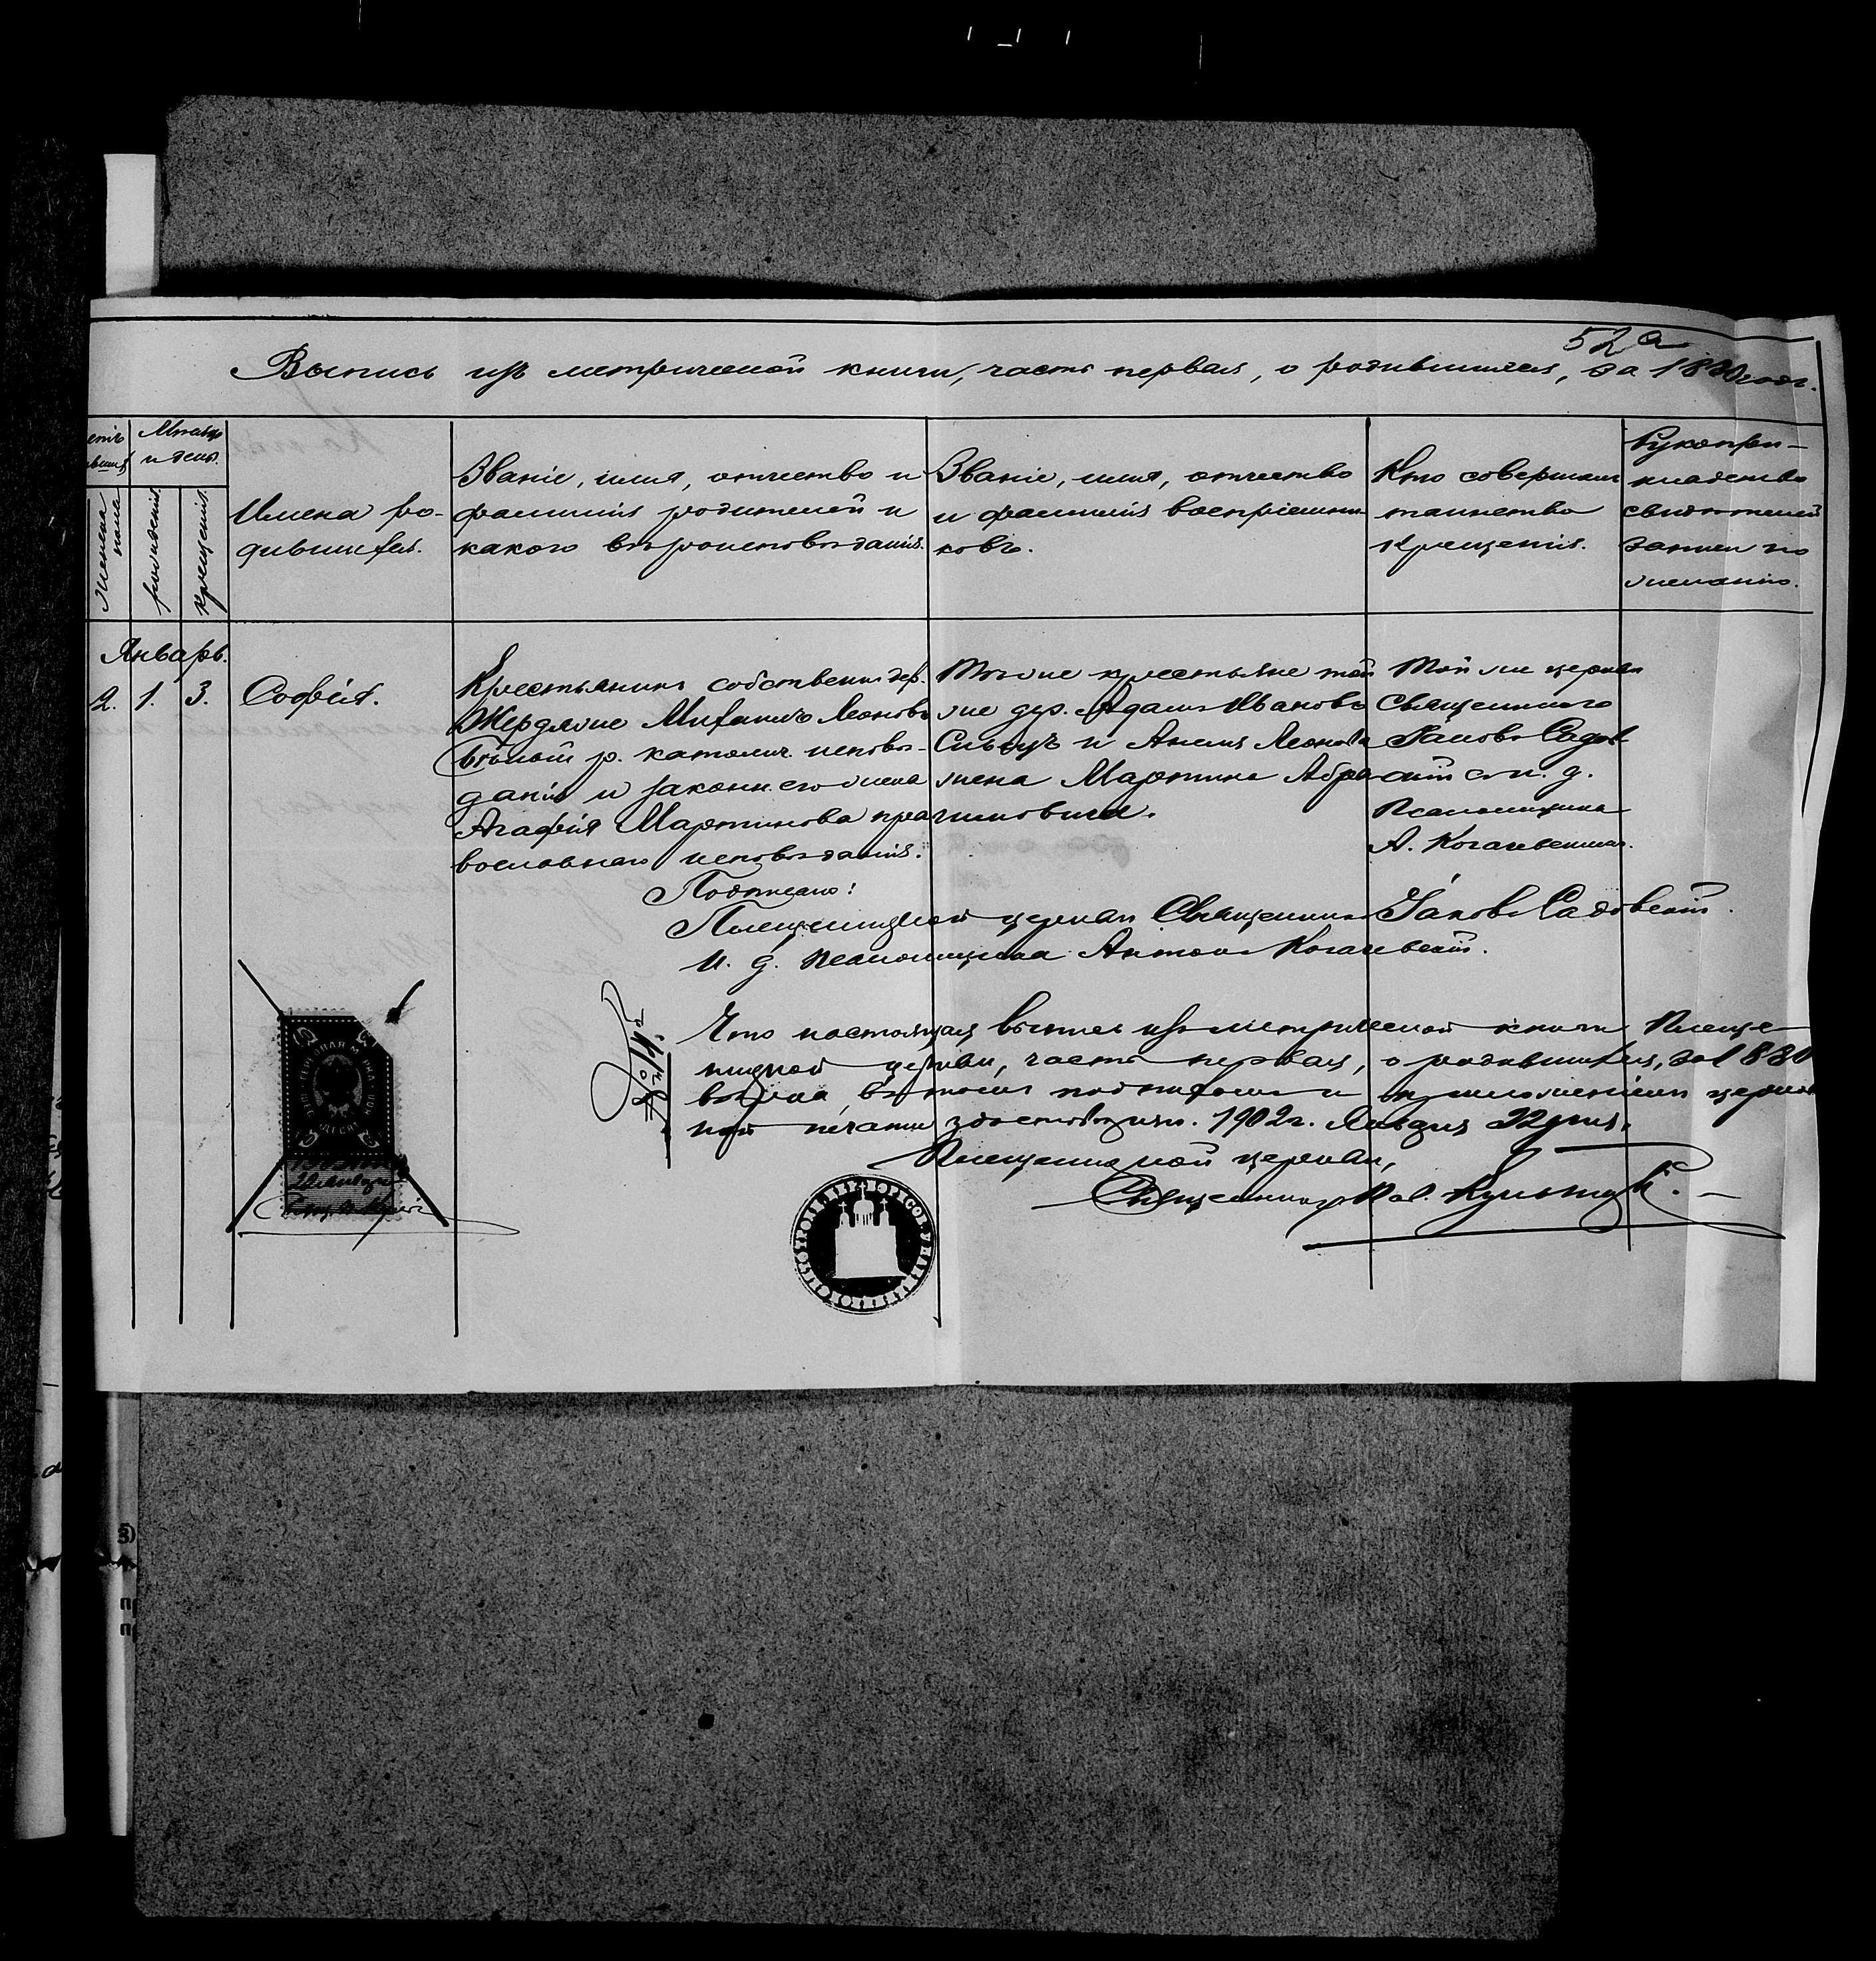 52а
Выпись изъ метрической книги, часть первая, о родившихся, за 1880 годъ.
Мѣсяцъ
и день.
Женска
пола
рожденія.
крещенія.
Имена ро-
дившихся.
Званіе, имя, отчество и
фамилія родителей и
какого вѣроисповѣданія.
Званіе, имя, отчество
и фамилія воспріемни-
ковъ.
Кто совершалъ
таинство
крещенія.
Рукопри-
кладство
свидѣтелей
записи по
желанію.
Январь.
2. 1. 3.
Софія.
Крестьянинъ собственн. дер.
Жердяжье Михаилъ Леоновъ
р. католич. исповѣ-
данія и законн. его жена
Агафія Мартинова пра-
вославнаго исповѣданія.
крестьяне той
же дер. Адамъ Ивановъ
и Анелія Леонова
жена Мартина Абра-
мовича.
Той же церкви
Священникъ
Іаковъ Садов-
скій съ и. д.
Псаломщика
А. Когачевскимъ.
Подписано:
Плещеницкой церкви Священникъ Іаковъ Садовскій.
И. д. псаломщика Антонъ Когачевскій.
№ 8
Что настоящая выпись изъ метрической книги Плеще-
ницкой церкви, часть первая, о родившихся, за 1880
въ томъ подписомъ и приложеніемъ церков-
ной печати удостовѣряю. 1902 г. Января 22 дня.
Плещеницкой церкви,
Священникъ
22 января